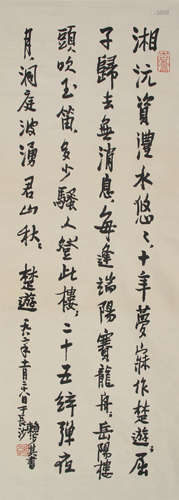 湘沅資澧水悠々十年夢寐作楚遊屈
子歸去無消息每逢端陽賽龍舟岳陽樓
頭吹玉笛多少騷人登此樓二十五絃彈夜
月洞庭波湧君山秋 楚遊
一九八二年十一月二十八日于長沙